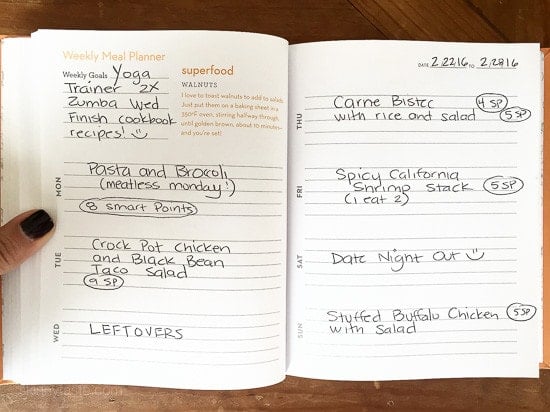 Weekly Meal Planner
Weekly Goals Yoga
Trainer 2X
Zumba Wed
Finish cookbook
recipes!
superfood
WALNUTS
I love to toast walnuts to add to salads.
Just put them on a baking sheet in a
350°F oven, stirring halfway through,
until golden brown, about 10 minutes–
and you're set!
MON
Pasta and Brocoli
(meatless monday!)
8 smart Points
TUE
Crock Pot Chicken
and Black Bean
Taco Salad
9 SP
WED
LEFTOVERS
DATE 2/22/16 TO 2/28/16
THU
Carne Bistec 4 SP
with rice and salad 5 SP
FRI
Spicy California
Shrimp Stack 5 SP
(i eat 2)
SAT
Date Night Out
SUN
Stuffed Buffalo Chicken 5 SP
with Salad